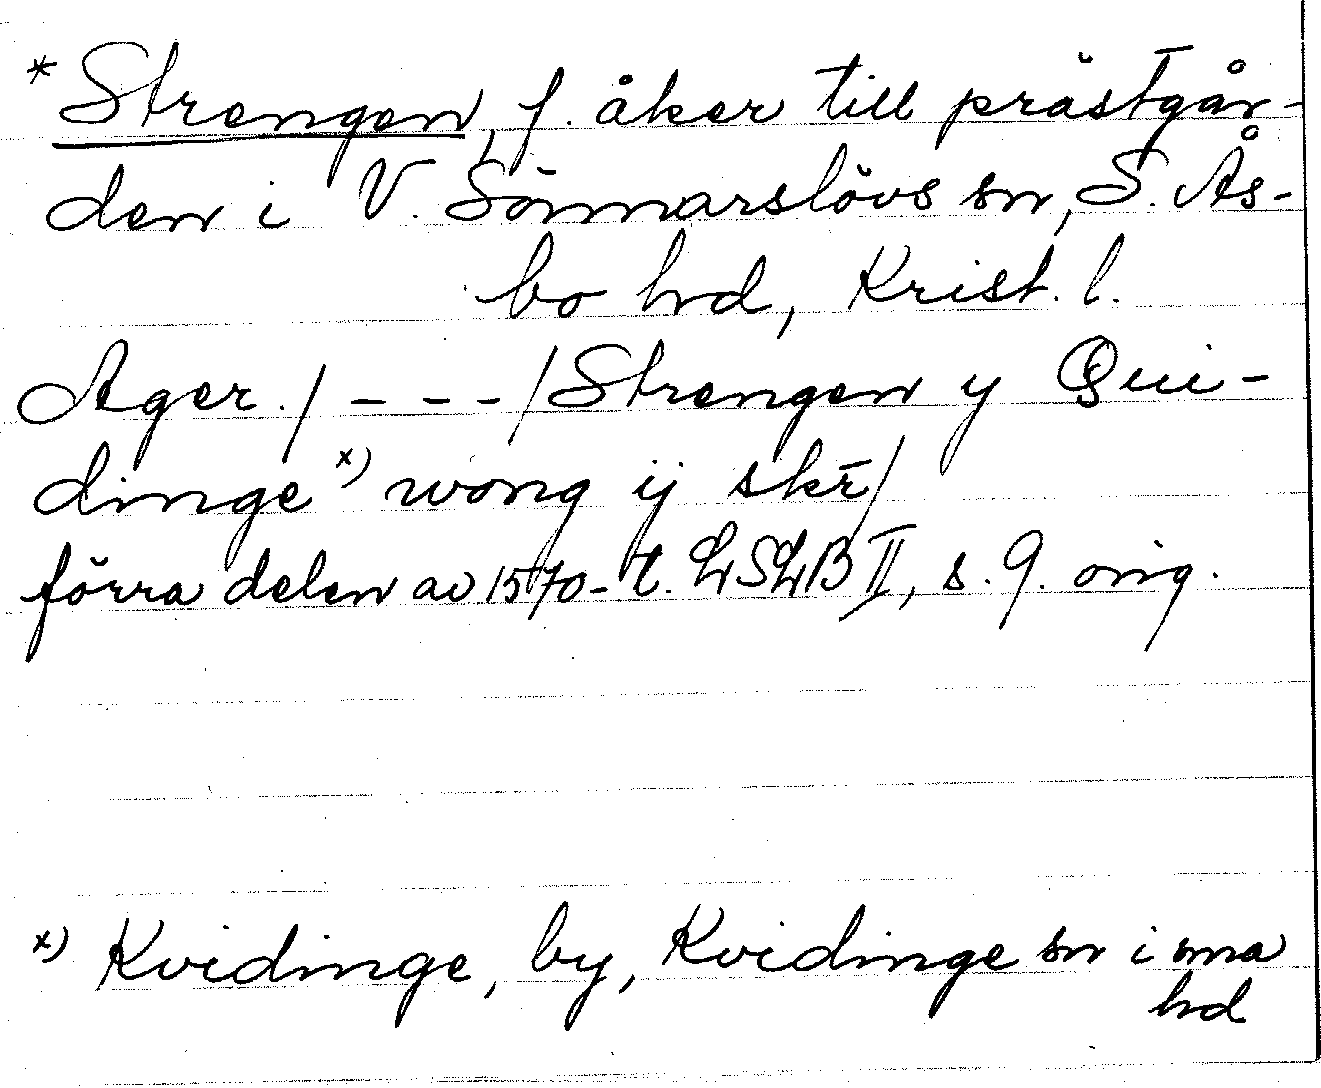 * Strengen, f. åker till prästgår-
den i V. Sönnarslövs sn, S. Ås-
bo hd, Krist. l.
Ager / - - - / Strengen y Qui-
dinge x) wong ij skr̄ /
förra delen av 1570-t. LSLB II, s. 9. orig.
x) Kvidinge, by, Kvidinge sn i sma
hd